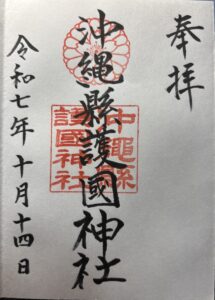 奉拝
沖縄縣護國神社
沖縄縣
護國神社
令和七年十月十四日